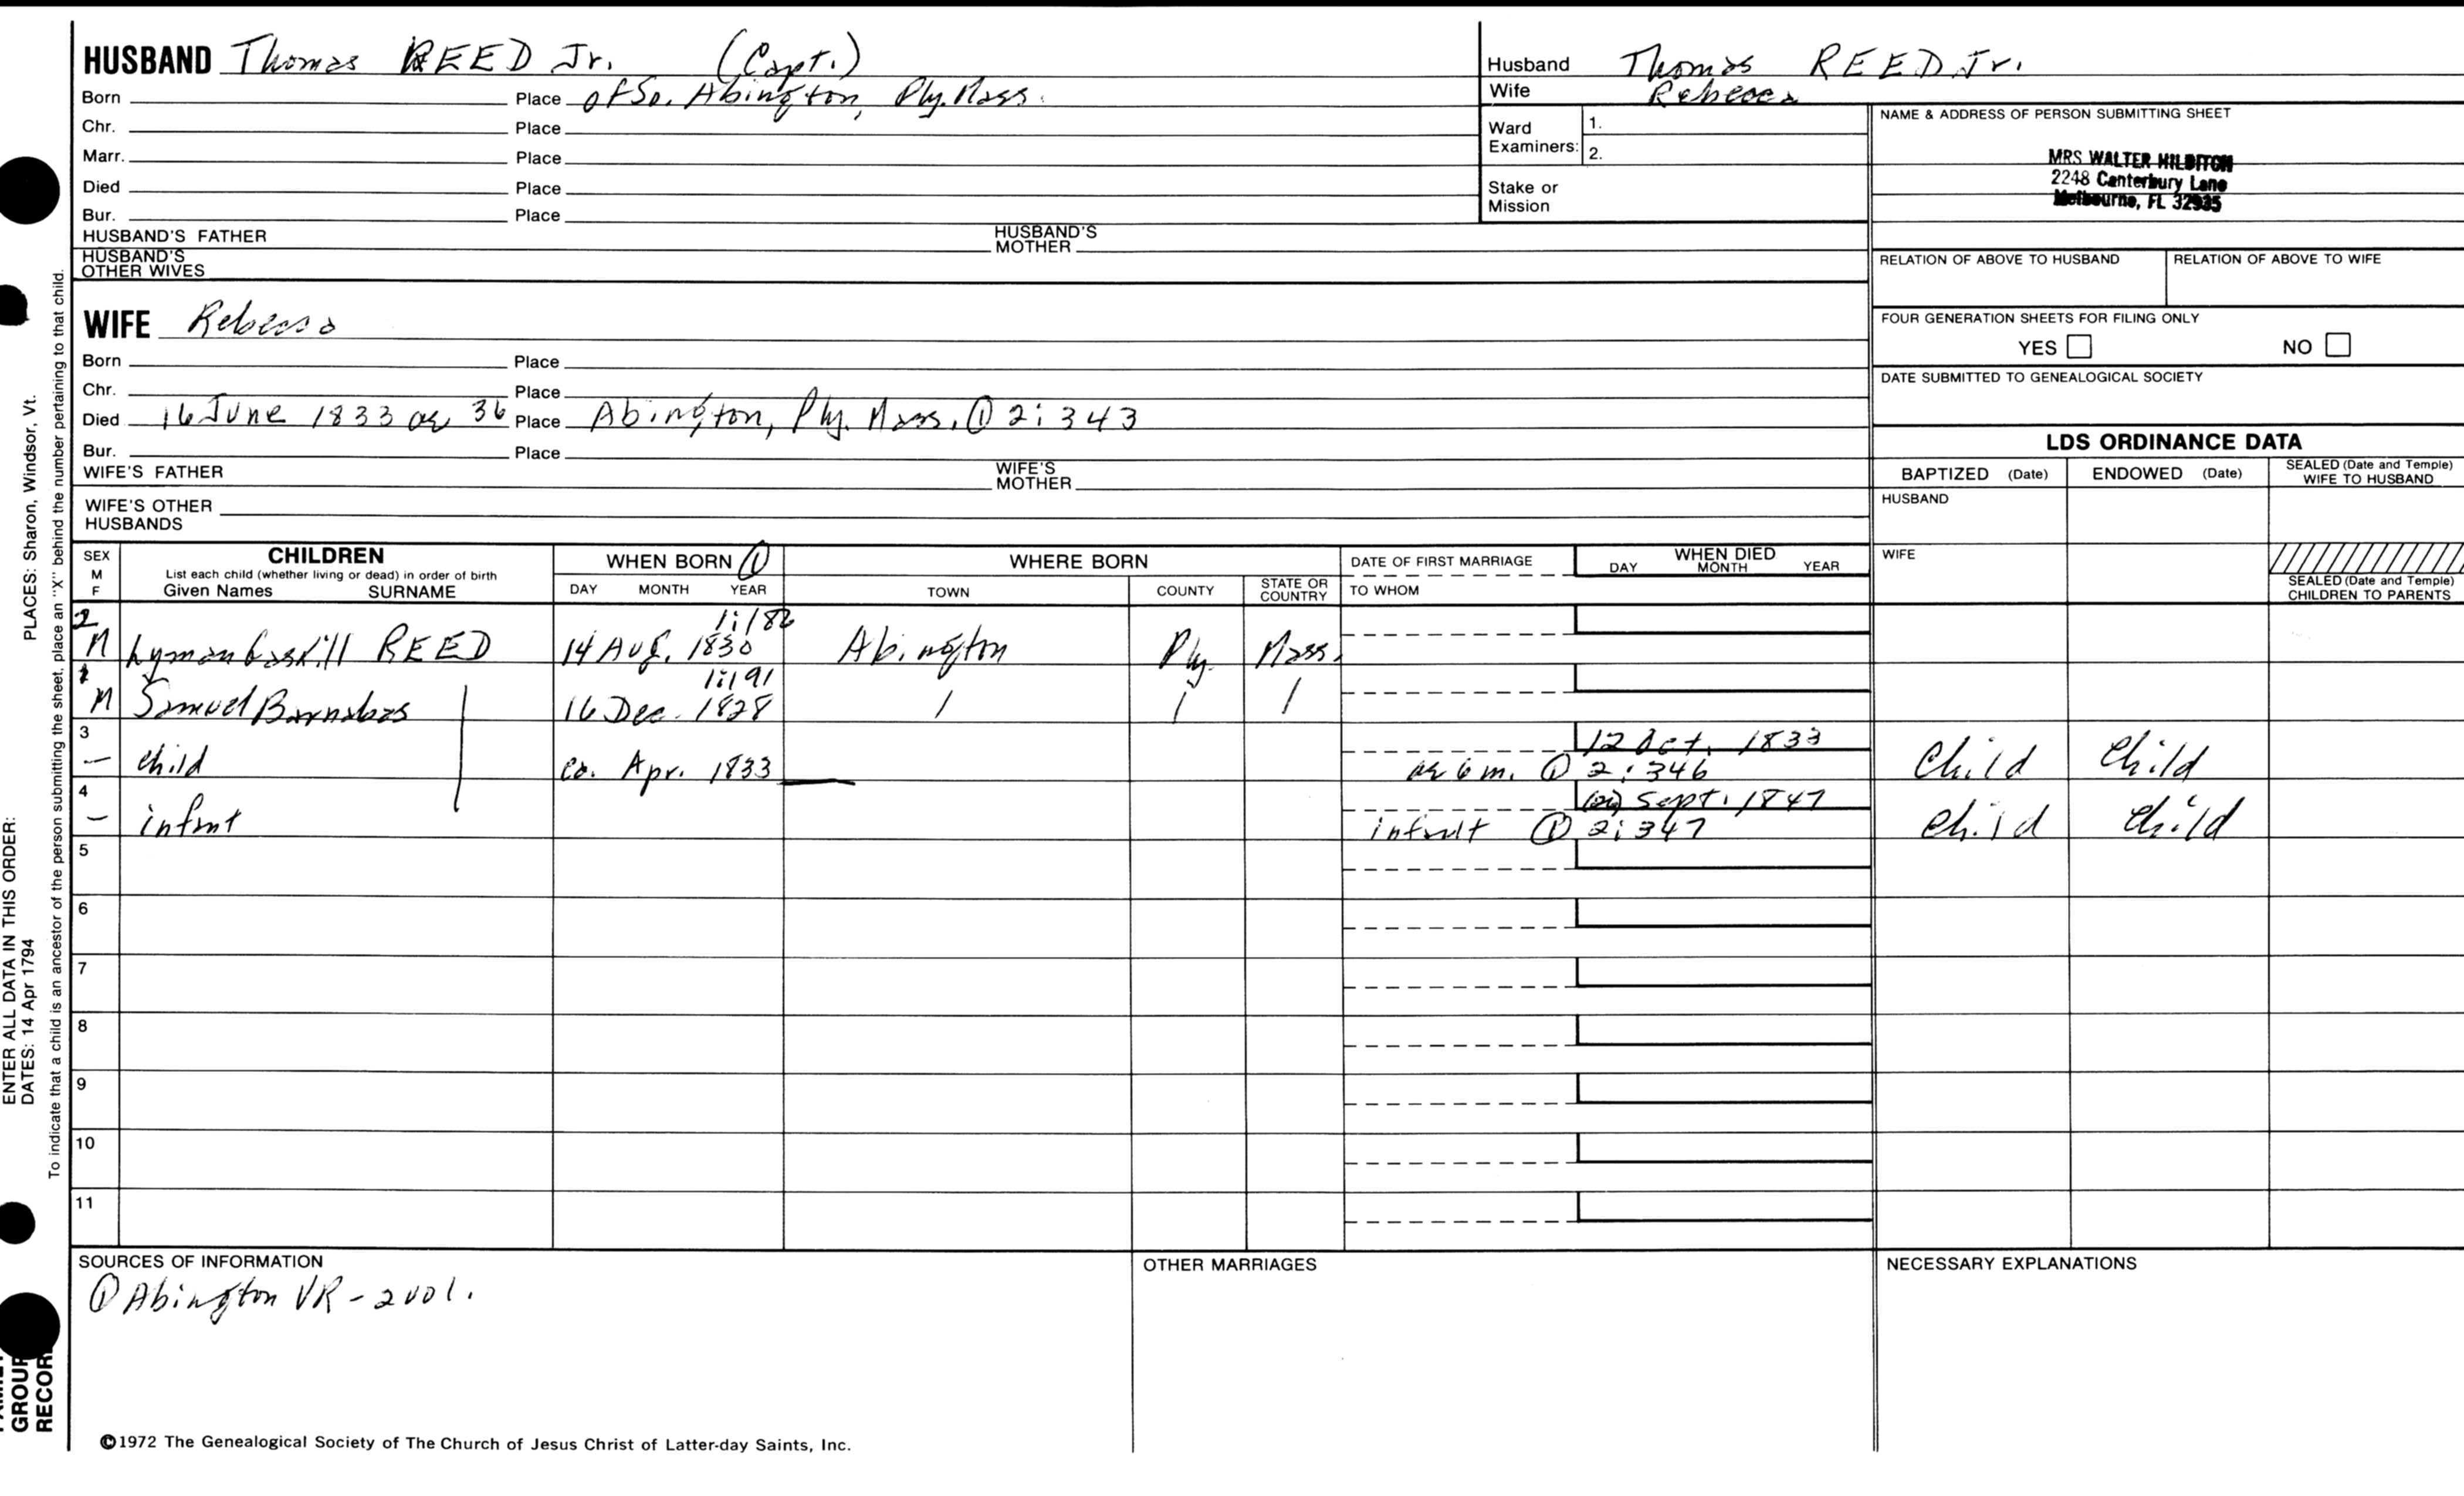 HUSBAND Thomas REED Jr. (Capt.)
Born Place of So. Abington, Ply. Mass.
Chr. Place
Marr. Place
Died Place
Bur. Place
HUSBAND'S FATHER HUSBAND'S MOTHER
HUSBAND'S OTHER WIVES
WIFE Rebecca
Born Place
Chr. Place
Died 16 June 1833 ae 36 Place Abington, Ply. Mass. ① 2:343
Bur. Place
WIFE'S FATHER WIFE'S MOTHER
WIFE'S OTHER HUSBANDS
Husband Thomas REED Jr.
Wife Rebecca
Ward Examiners: 1.
2.
Stake or Mission
NAME & ADDRESS OF PERSON SUBMITTING SHEET
MRS WALTER HILDITCH
2248 Canterbury Lane
Melbourne, FL 32935
RELATION OF ABOVE TO HUSBAND RELATION OF ABOVE TO WIFE
FOUR GENERATION SHEETS FOR FILING ONLY
YES NO
DATE SUBMITTED TO GENEALOGICAL SOCIETY
LDS ORDINANCE DATA
BAPTIZED (Date) ENDOWED (Date) SEALED (Date and Temple) WIFE TO HUSBAND
HUSBAND
WIFE
SEALED (Date and Temple) CHILDREN TO PARENTS
SEX M F
CHILDREN
List each child (whether living or dead) in order of birth
Given Names SURNAME
WHEN BORN ①
DAY MONTH YEAR
WHERE BORN
TOWN COUNTY STATE OR COUNTRY
DATE OF FIRST MARRIAGE
TO WHOM
WHEN DIED
DAY MONTH YEAR
2 1:186
M Lyman Gaskill REED 14 Aug. 1830 Abington Ply. Mass.
1 1:191
M Samuel Barnabas | 16 Dec. 1828 / / /
3 12 Oct. 1833
— child ca. Apr. 1833 — ae 6 m. ① 2:346 Child Child
4 Sept. 1847
— infant infant ① 2:347 Child Child
5
6
7
8
9
10
11
SOURCES OF INFORMATION
① Abington VR - 2 vol.
OTHER MARRIAGES
NECESSARY EXPLANATIONS
©1972 The Genealogical Society of The Church of Jesus Christ of Latter-day Saints, Inc.
ENTER ALL DATA IN THIS ORDER:
DATES: 14 Apr 1794 PLACES: Sharon, Windsor, Vt.
To indicate that a child is an ancestor of the person submitting the sheet, place an "X" behind the number pertaining to that child.
GROUP
RECOR